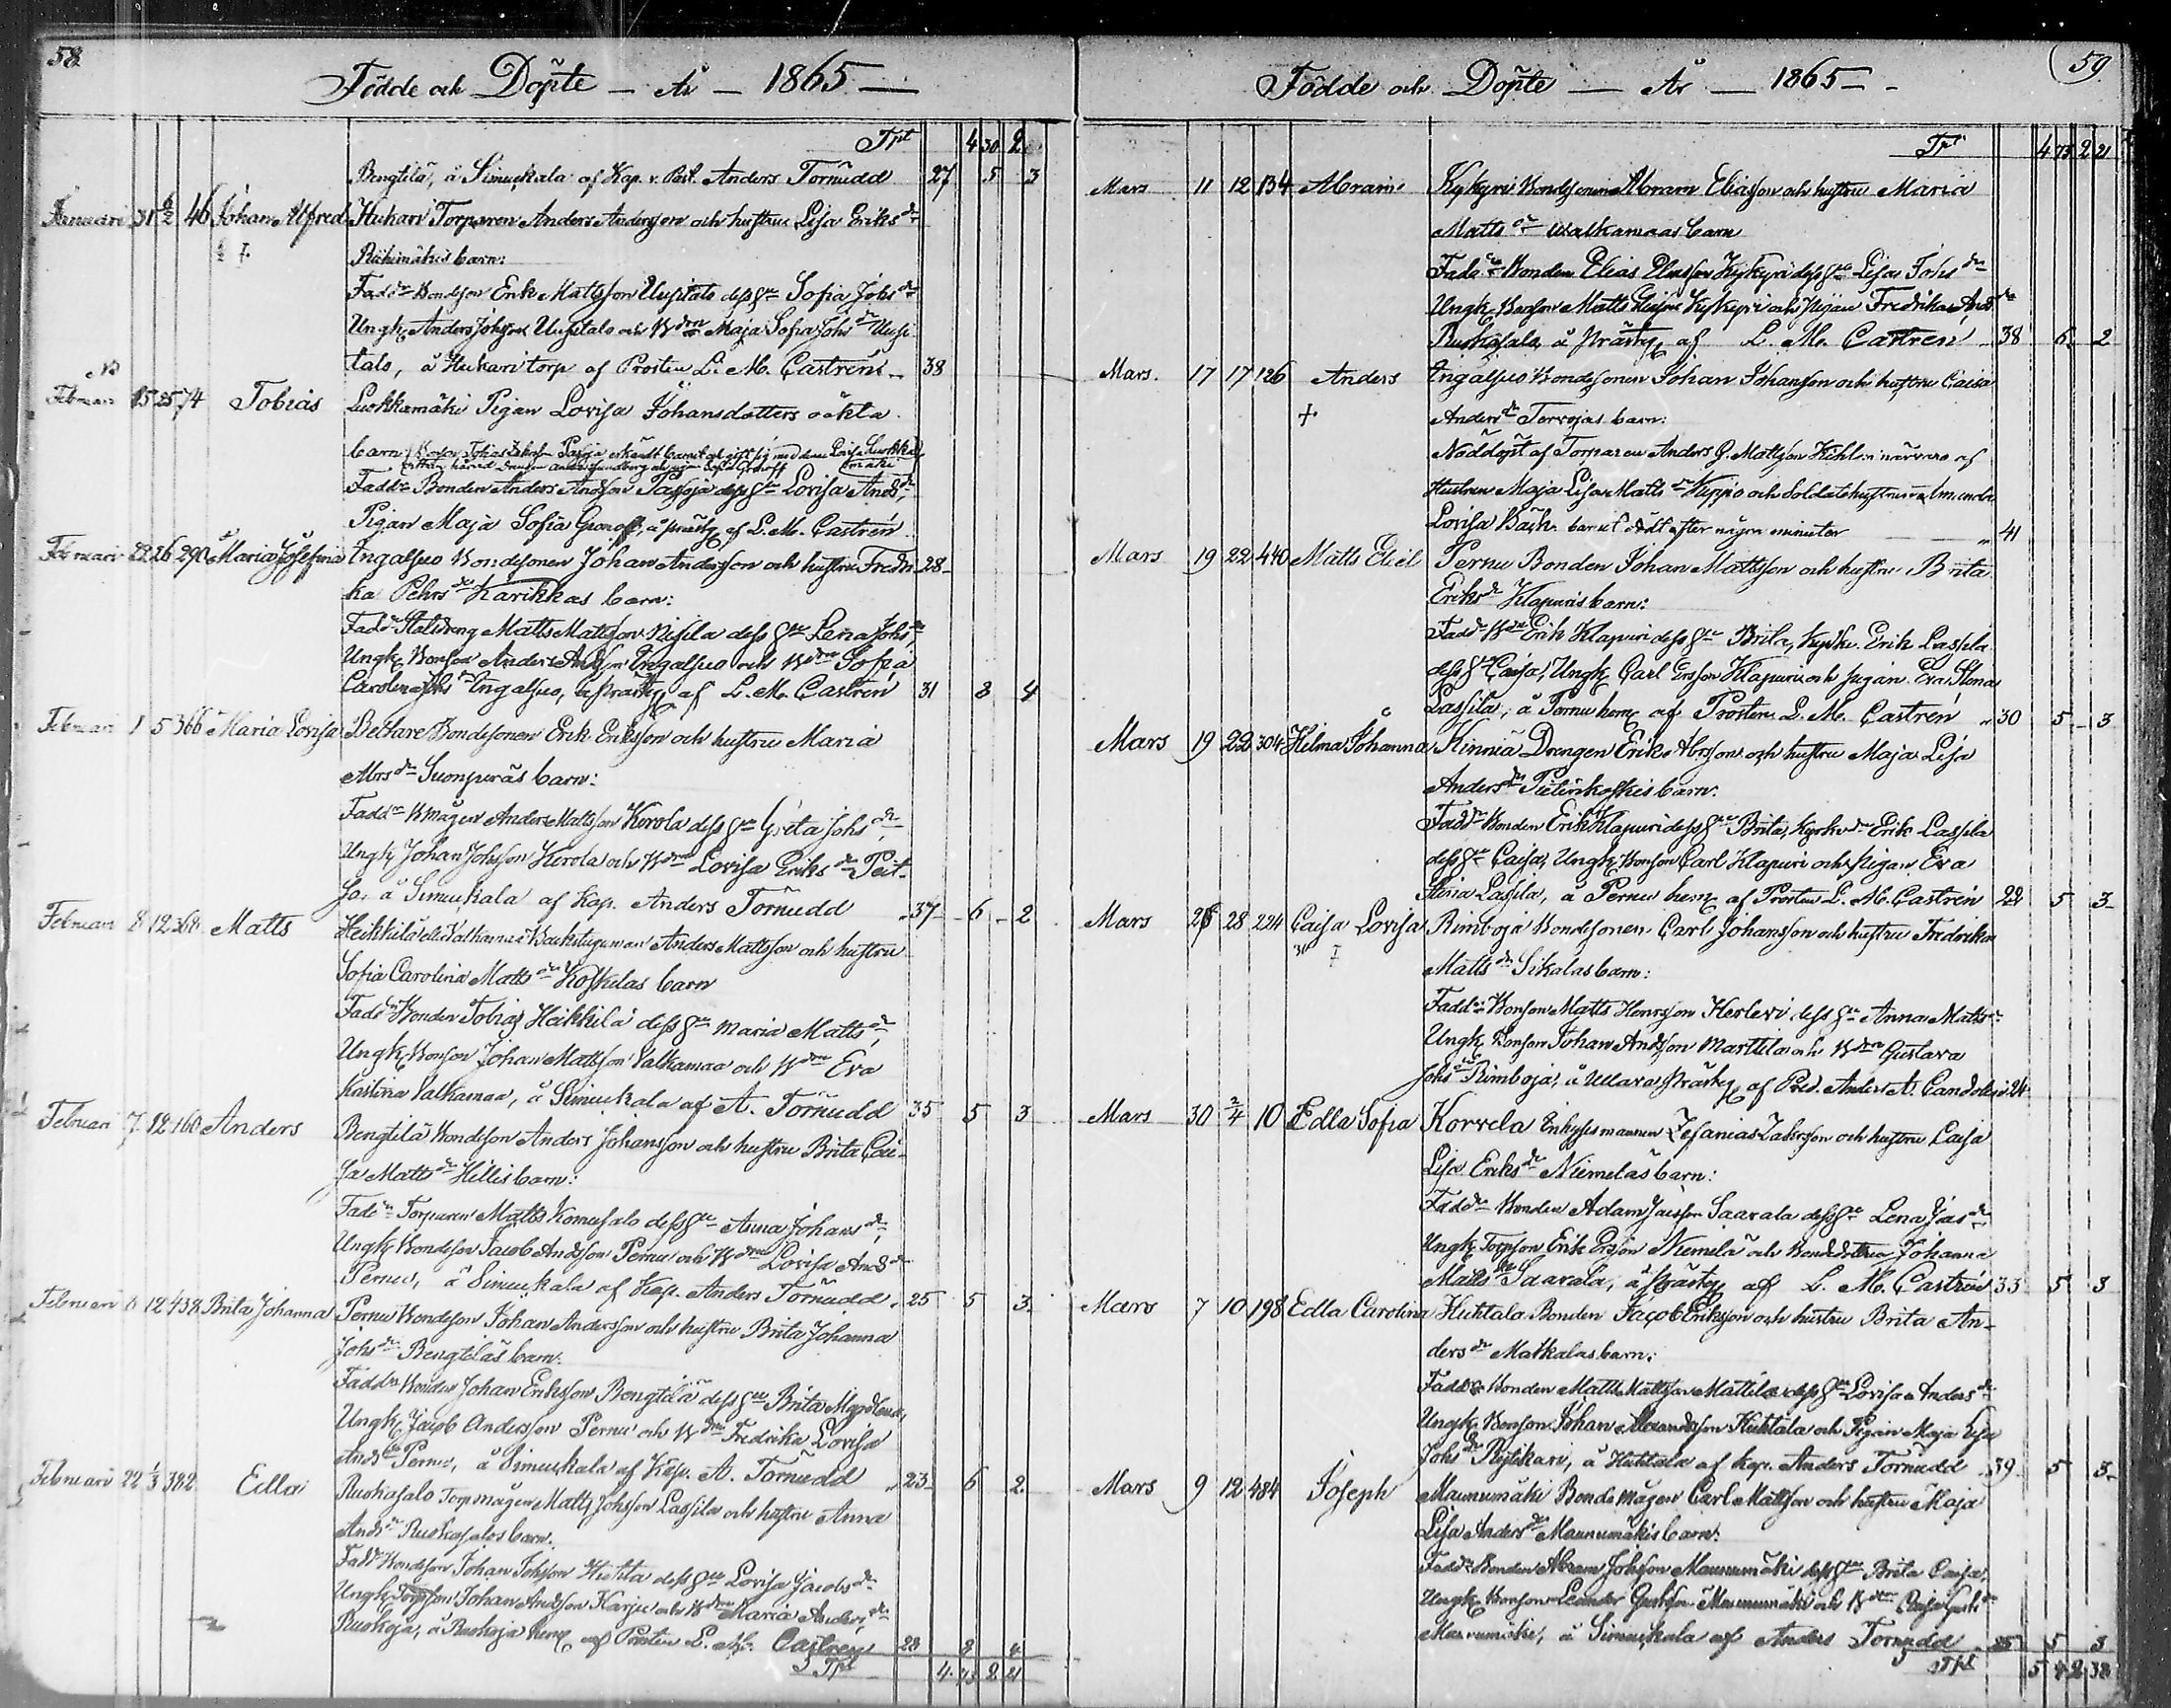 58
Födde och Döpte — År — 1865 —
Trpt 4 30 2
Bengtilä, å Simuckala af Kap. v. Past. Anders Törnudd 27 5 3
Januari 31 6/2 46 Johan Alfred Huhari Torparen Anders Andersson och hustru Lisa Eriks dr
Riihimäkis barn:
Fadd. Bondson Erik Mattsson Uusitalo dess hu Sofia Johs dr
Ungk. Anders Johsson Uusitalo och B dn Maja Sofia Johs dr Uusi
talo, å Huhari torp af Prosten L. M. Castrén 38
Februari 15 25 74 Tobias Luokkamäki Pigan Lovisa Johansdotters oäkta
barn
Fadd. Bonden Anders Andsson Passoja dess hu Lovisa Ands dr,
Pigan Maja Sofia Gronoff, å prästg. af L. M. Castrén 28
Februari 22 26 290 Maria Josefina Ingalsuo Bondesonen Johan Andersson och hustru Fredri
ka Pehrs dr Karikkas barn:
Fadd. Matts Mattsson Nisula dess hu Lena Johs dr,
Ungk. Bonson Anders Andsson Ingalsuo och B dn Sofia
Carolina Johs dr Ingalsuo, å prästg. af L. M. Castrén 31 8 4
Februari 1 5 366 Maria Lovisa Beltare Bondesonen Erik Eriksson och hustru Maria
Abrs dr Suonperäs barn:
Fadd. B mågen Anders Mattsson Kerola dess hu Greta Johs dr,
Ungk. Johan Johsson Kerola och B dn Lovisa Eriks dr Peit
so, å Simuckala af Kap. Anders Törnudd 37 6 2
Februari 8 12 368 Matts Heikkilä Backstuguman Anders Mattsson och hustru
Sofia Carolina Matts dr Koskelas barn
Fadd. Bonden Tobias Heikkilä dess hu Maria Matts dr,
Ungk. Bonson Johan Mattsson Valkamaa och B dn Eva
Kaitrina Valkamaa, å Simuckala af A. Törnudd 35 5 3
Februari 7 12 160 Anders Bengtilä Bondson Anders Johansson och hustru Brita Cai
sa Matts dr Hillis barn:
Fadd. Torparen Matts Komusalo dess hu Anna Johans dr,
Ungk. Bondsson Jacob Andsson Pernu och B dn Lovisa Ands dr
Pernu, å Simuckala af Kap. Anders Törnudd 25 5 3
Februari 6 12 438 Brita Johanna Pernu Bondson Johan Andersson och hustru Brita Johanna
Johs dr Bengtiläs barn:
Fadd. Bonden Johan Eriksson Bengtilä dess hu Brita Magdlena,
Ungk. Jacob Andersson Pernu och B dn Fredrika Lovisa
Ands dr Pernu, å Simuckala af Kap. A. Törnudd 23 6 2
Februari 22 1/3 382 Edla Ruokasalo Torpmågen Matts Johsson Lassila och hustru Anna
Ands dr Ruokasalos barn:
Fadd. Bondsson Johan Johsson Hietta dess hu Lovisa Jacobs dr
Ungk. Torpson Johan Andsson Karjee och B dn Maria Anders dr
Ruokoja, å Ruokoja hem. af Prosten L. M. Castrén 28 8 4
Trpt 4 73 2 21
59
Födde och Döpte — År — 1865 —
Trpt 4 73 2 21
Mars 11 12 134 Abram Kykyri Bondsonen Abram Eliasson och hustru Maria
Matts dr Walkamaas barn
Fadd. Bonden Elias Eliasson Kykyri dess hu Lisa Johs dr
Ungk. Bonson Matts Kykyri och Pigan Fredrika Ands dr
Ruokasalo å prästg. af L. M. Castrén 38 6 2
Mars 17 17 126 Anders Ingalsuo Bondesonen Johan Johansson och hustru Caisa
Anders dr Torvojas barn:
Nöddöpt af Torparen Anders G. Mattsson i närvaro af
Hustrun Maja Lisa Matts dr Kippo och Soldatshustrun
Lovisa Bäck. barnet dödt efter några minuter 41
Mars 19 22 440 Matts Eliel Pernu Bonden Johan Mattsson och hustru Brita
Eriks dr Klapuris barn:
Fadd. B dn Erik Klapuri dess hu Brita, Kyrkv. Erik Lassila
dess hu Caisa, Ungk. Carl Ersson Klapuri och pigan Eva Stina
Lassila, å Pernu hem. af Prosten L. M. Castrén 30 5 3
Mars 19 22 304 Hilma Johanna Kinniä Drengen Erik Abrsson och hustru Maja Lisa
Anders dr Pietiskoskis barn:
Fadd. Bonden Erik Klapuri dess hu Brita, Kyrkv. Erik Lassila
dess hu Caisa, Ungk. Bonson Carl Klapuri och pigan Eva
Stina Lassila, å Pernu hem. af Prosten L. M. Castrén 22 5 3
Mars 26 28 224 Caisa Lovisa Rimboja Bondesonen Carl Johansson och hustru Fredrika
Matts dr Sikalas barn:
Fadd. Bonson Matts Henrsson Herlevi dess hu Anna Matts dr
Ungk. Bonson Johan Andsson Marttila och B dn Gustava
Johs dr Rimboja, å Ullava prästg. af Pred. Anders A. Candolin 24
Mars 30 2/4 10 Edla Sofia Korvela Inhysesmannen Zefanias Zakrsson och hustru Caisa
Lisa Eriks dr Niemeläs barn:
Fadd. Bonden Adam Saarala dess hu Lena dr
Ungk. Torpson Erik Ersson Niemelä och Bondedottren Johanna
Matts dr Saarala, å prästg. af L. M. Castrén 33 5 3
Mars 7 10 198 Edla Carolina Huhtala Bonden Jacob Eriksson och hustru Brita An
ders dr Matkalas barn:
Fadd. Bonden Matts Mattsson Mattila dess hu Lovisa Anders dr
Ungk. Bonson Johan Alexandersson Huhtala och Pigan Maja Lisa
Johs dr Kytikari, å Huhtala af Kap. Anders Törnudd 39 5 3
Mars 9 12 484 Joseph Maunumäki Bondemågen Carl Mattsson och hustru Maja
Lisa Anders dr Maunumäkis barn:
Fadd. Bonden Abram Johsson Maunumäki dess hu Brita Caisa,
Ungk. Bonson Leander Gustsson Maunumäki och B dn Caisa Gust dr
Maunumäki, å Simuckala af Anders Törnudd 25 5 3
Trpt 5 4 2 38